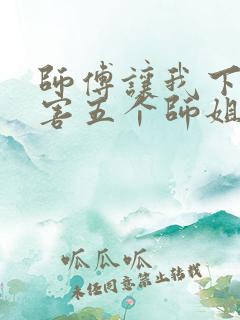 師傅讓我下
害五个師姐
呱瓜呱
未经同意禁止转载